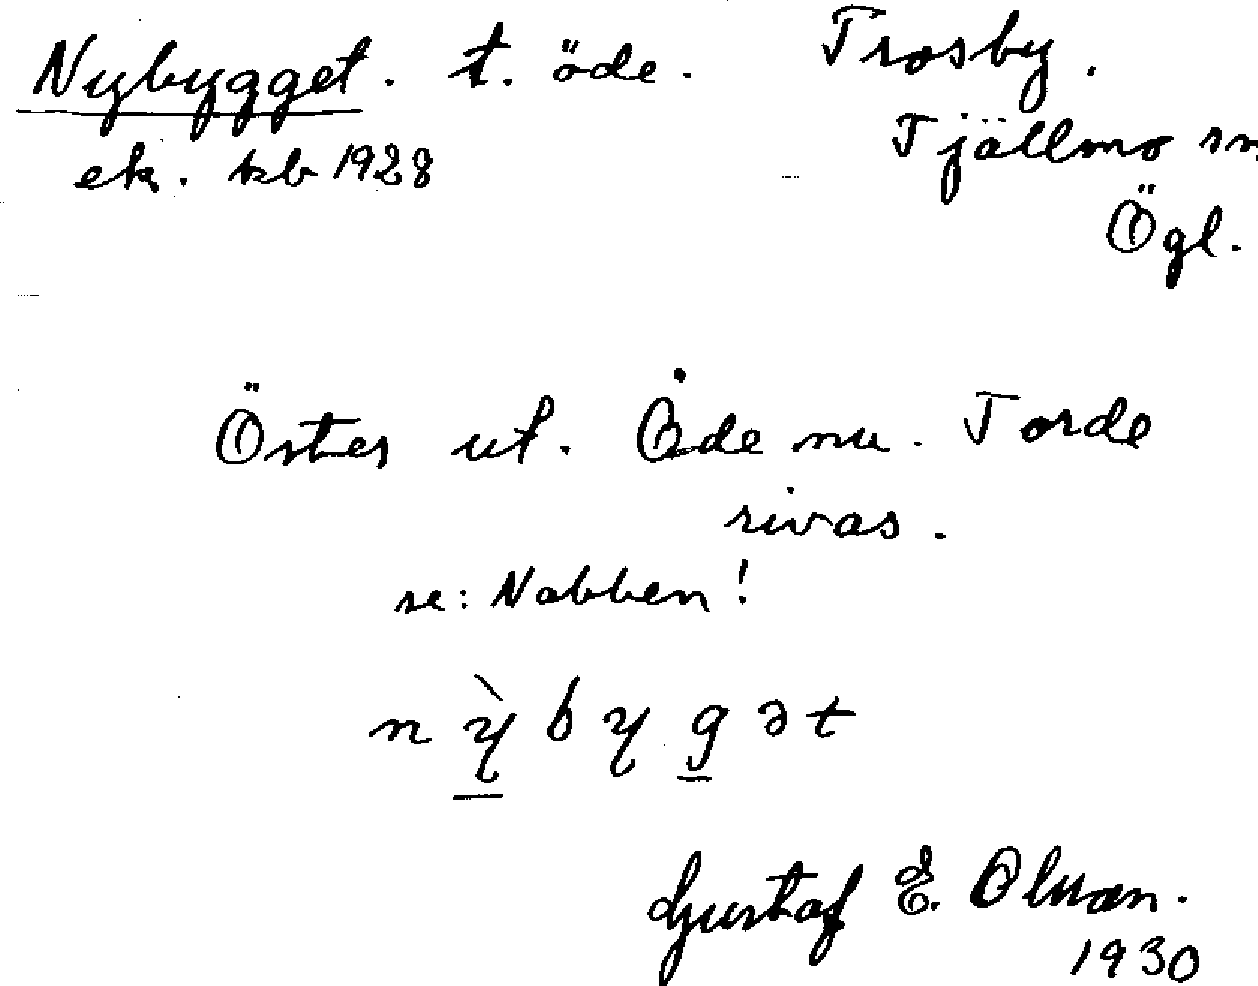 Nybygget. t. öde. Trosby.
ek. kb 1928 Tjällmo sn
Ögl.
Öster ut. Öde nu. Torde
rivas.
se: Nabben!
nỳbygət
Gustaf E. Olsson.
1930